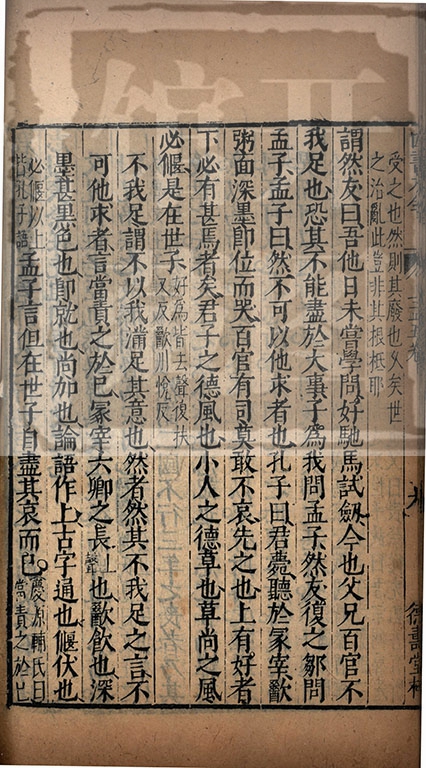 受之也然則其廢也久矣世
之治亂此豈非其根柢耶
謂然友曰吾他日未嘗學問好馳馬試劔今也父兄百官不
我足也恐其不能盡於大事子為我問孟子然友復之鄒問
孟子孟子曰然不可以他求者也孔子曰君薨聽於冢宰歠
粥面深墨即位而哭百官有司莫敢不哀先之也上有好者
下必有甚焉者矣君子之德風也小人之德草也草尚之風
必偃是在世子好為皆去聲復扶
又反歠川悅反
不我足謂不以我滿足其意也然者然其不我足之言不
可他求者言當責之於已冢宰六卿之長上聲也歠飲也深
墨甚黑色也即就也尚加也論語作上古字通也偃伏也
必偃以上
皆孔子語孟子言但在世子自盡其哀而已慶源輔氏曰
當責之於已
德壽堂梓